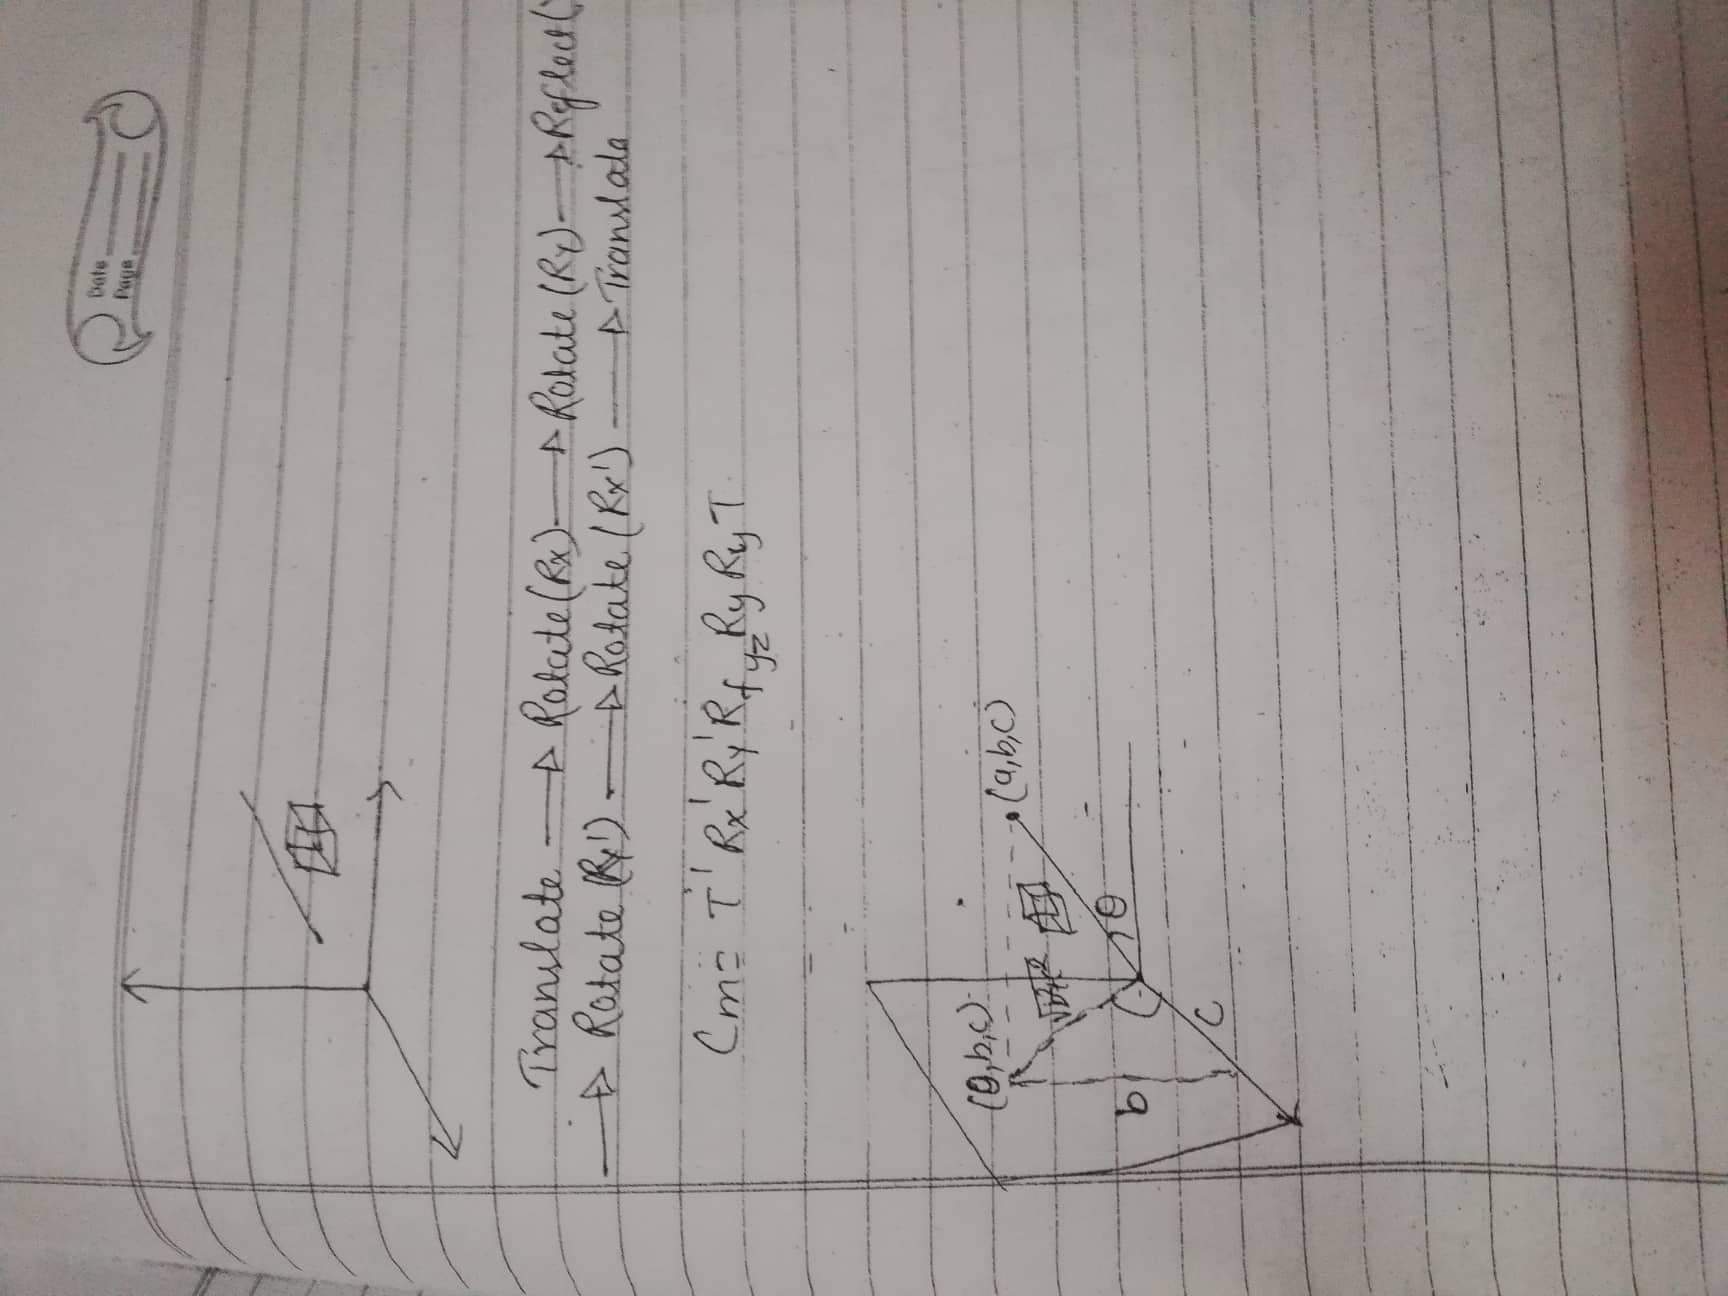 Date
Page
Translate → Rotate (Rx) → Rotate (Ry) → Reflect (
→ Rotate (Ry') → Rotate (Rx') → Translate
Cm = T' Rx' Ry' Rfyz Ry Ry T
(0,b,c)
(a,b,c)
√b²+c²
θ
b
c